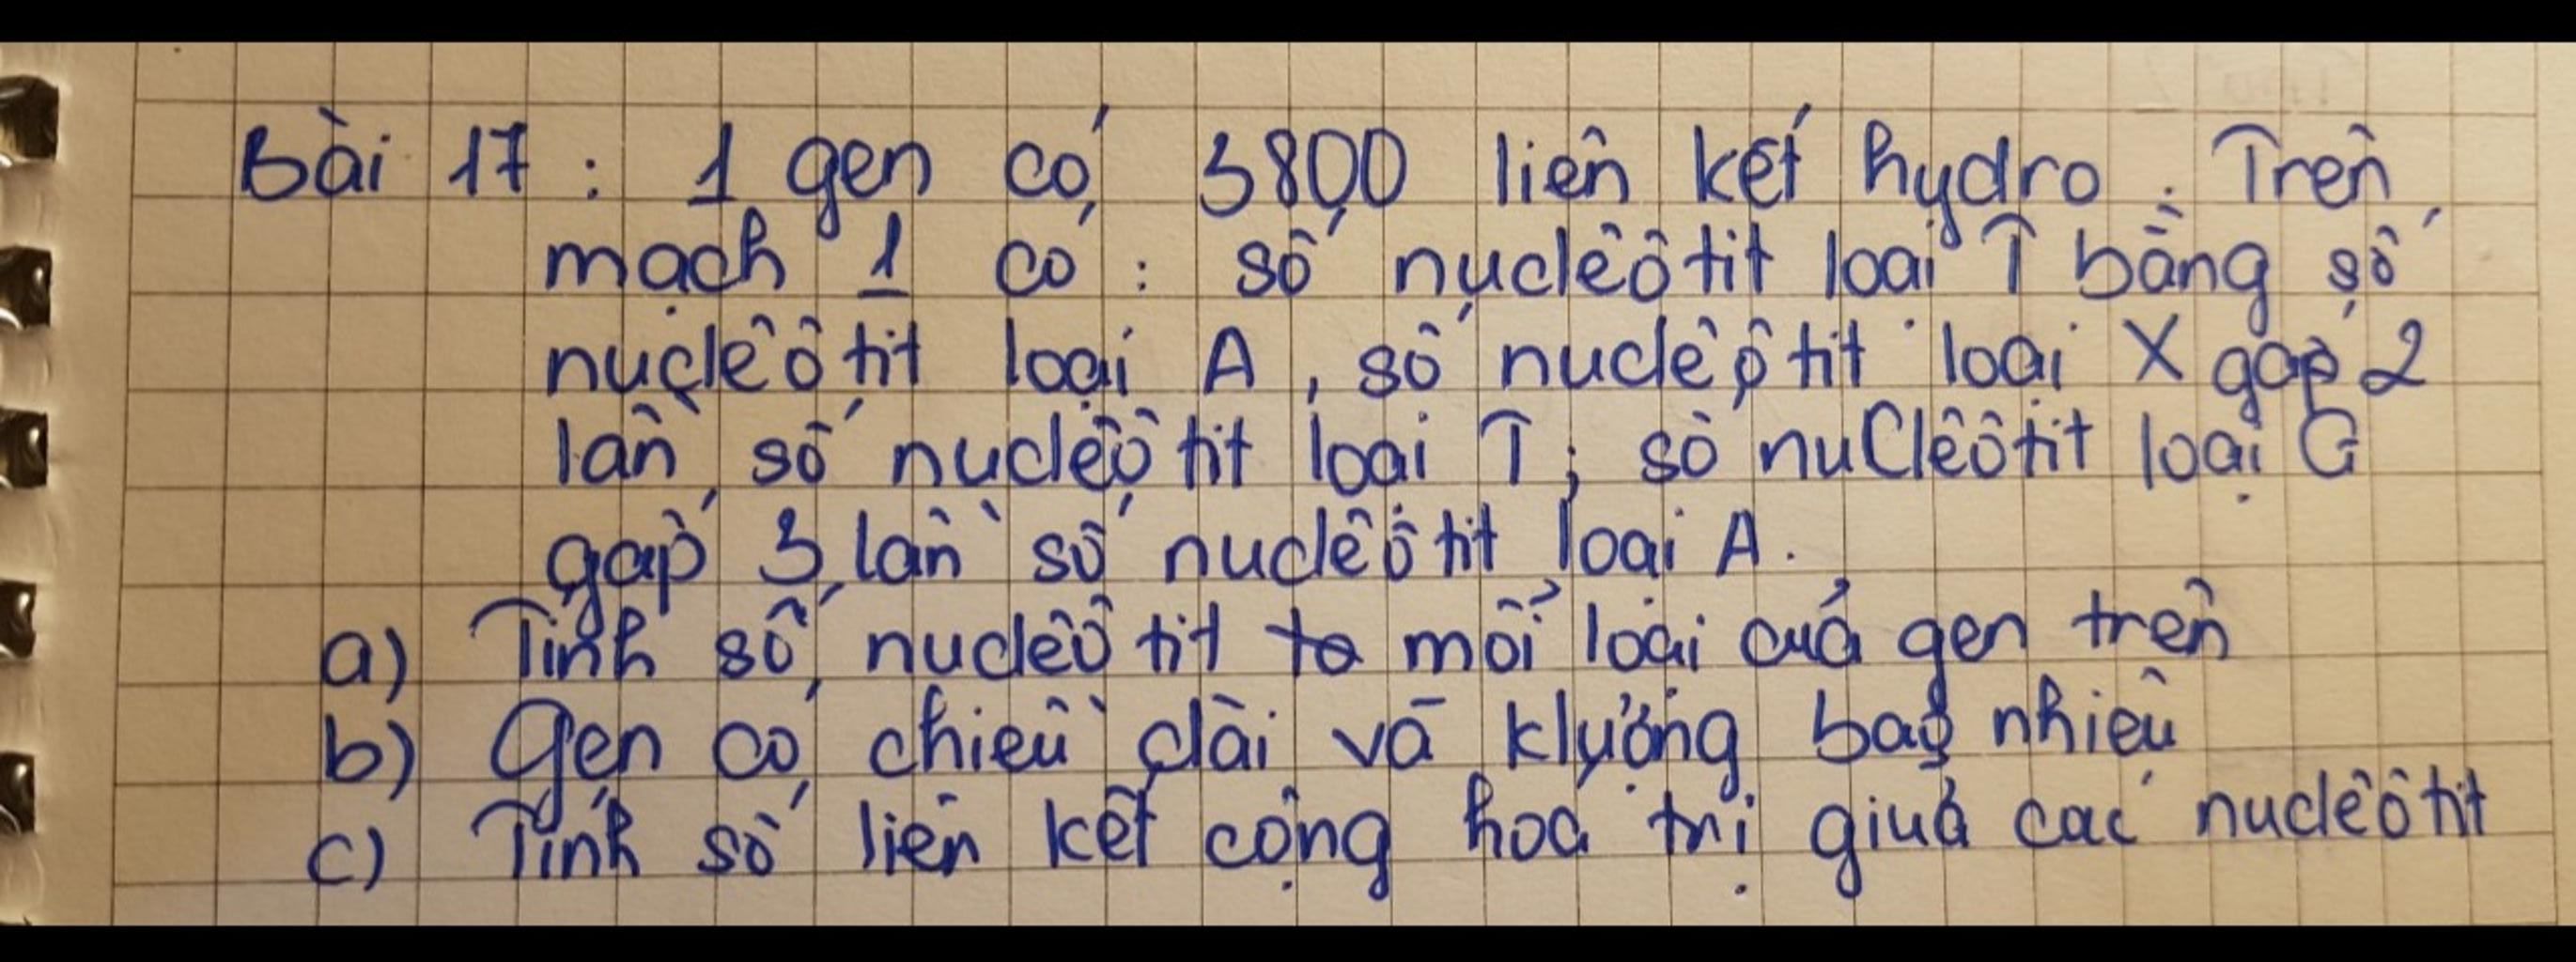 Bài 17 : 1 gen có 3800 liên kết hydro . Trên
mạch 1 có : số nuclêôtit loại T bằng số
nuclêôtit loại A , số nuclêôtit loại X gấp 2
lần số nuclêôtit loại T ; số nuclêôtit loại G
gấp 3 lần số nuclêôtit loại A .
a) Tính số nuclêôtit to mỗi loại của gen trên
b) Gen có chiều dài và klượng bao nhiêu
c) Tính số liên kết cộng hoá trị giữa các nuclêôtit